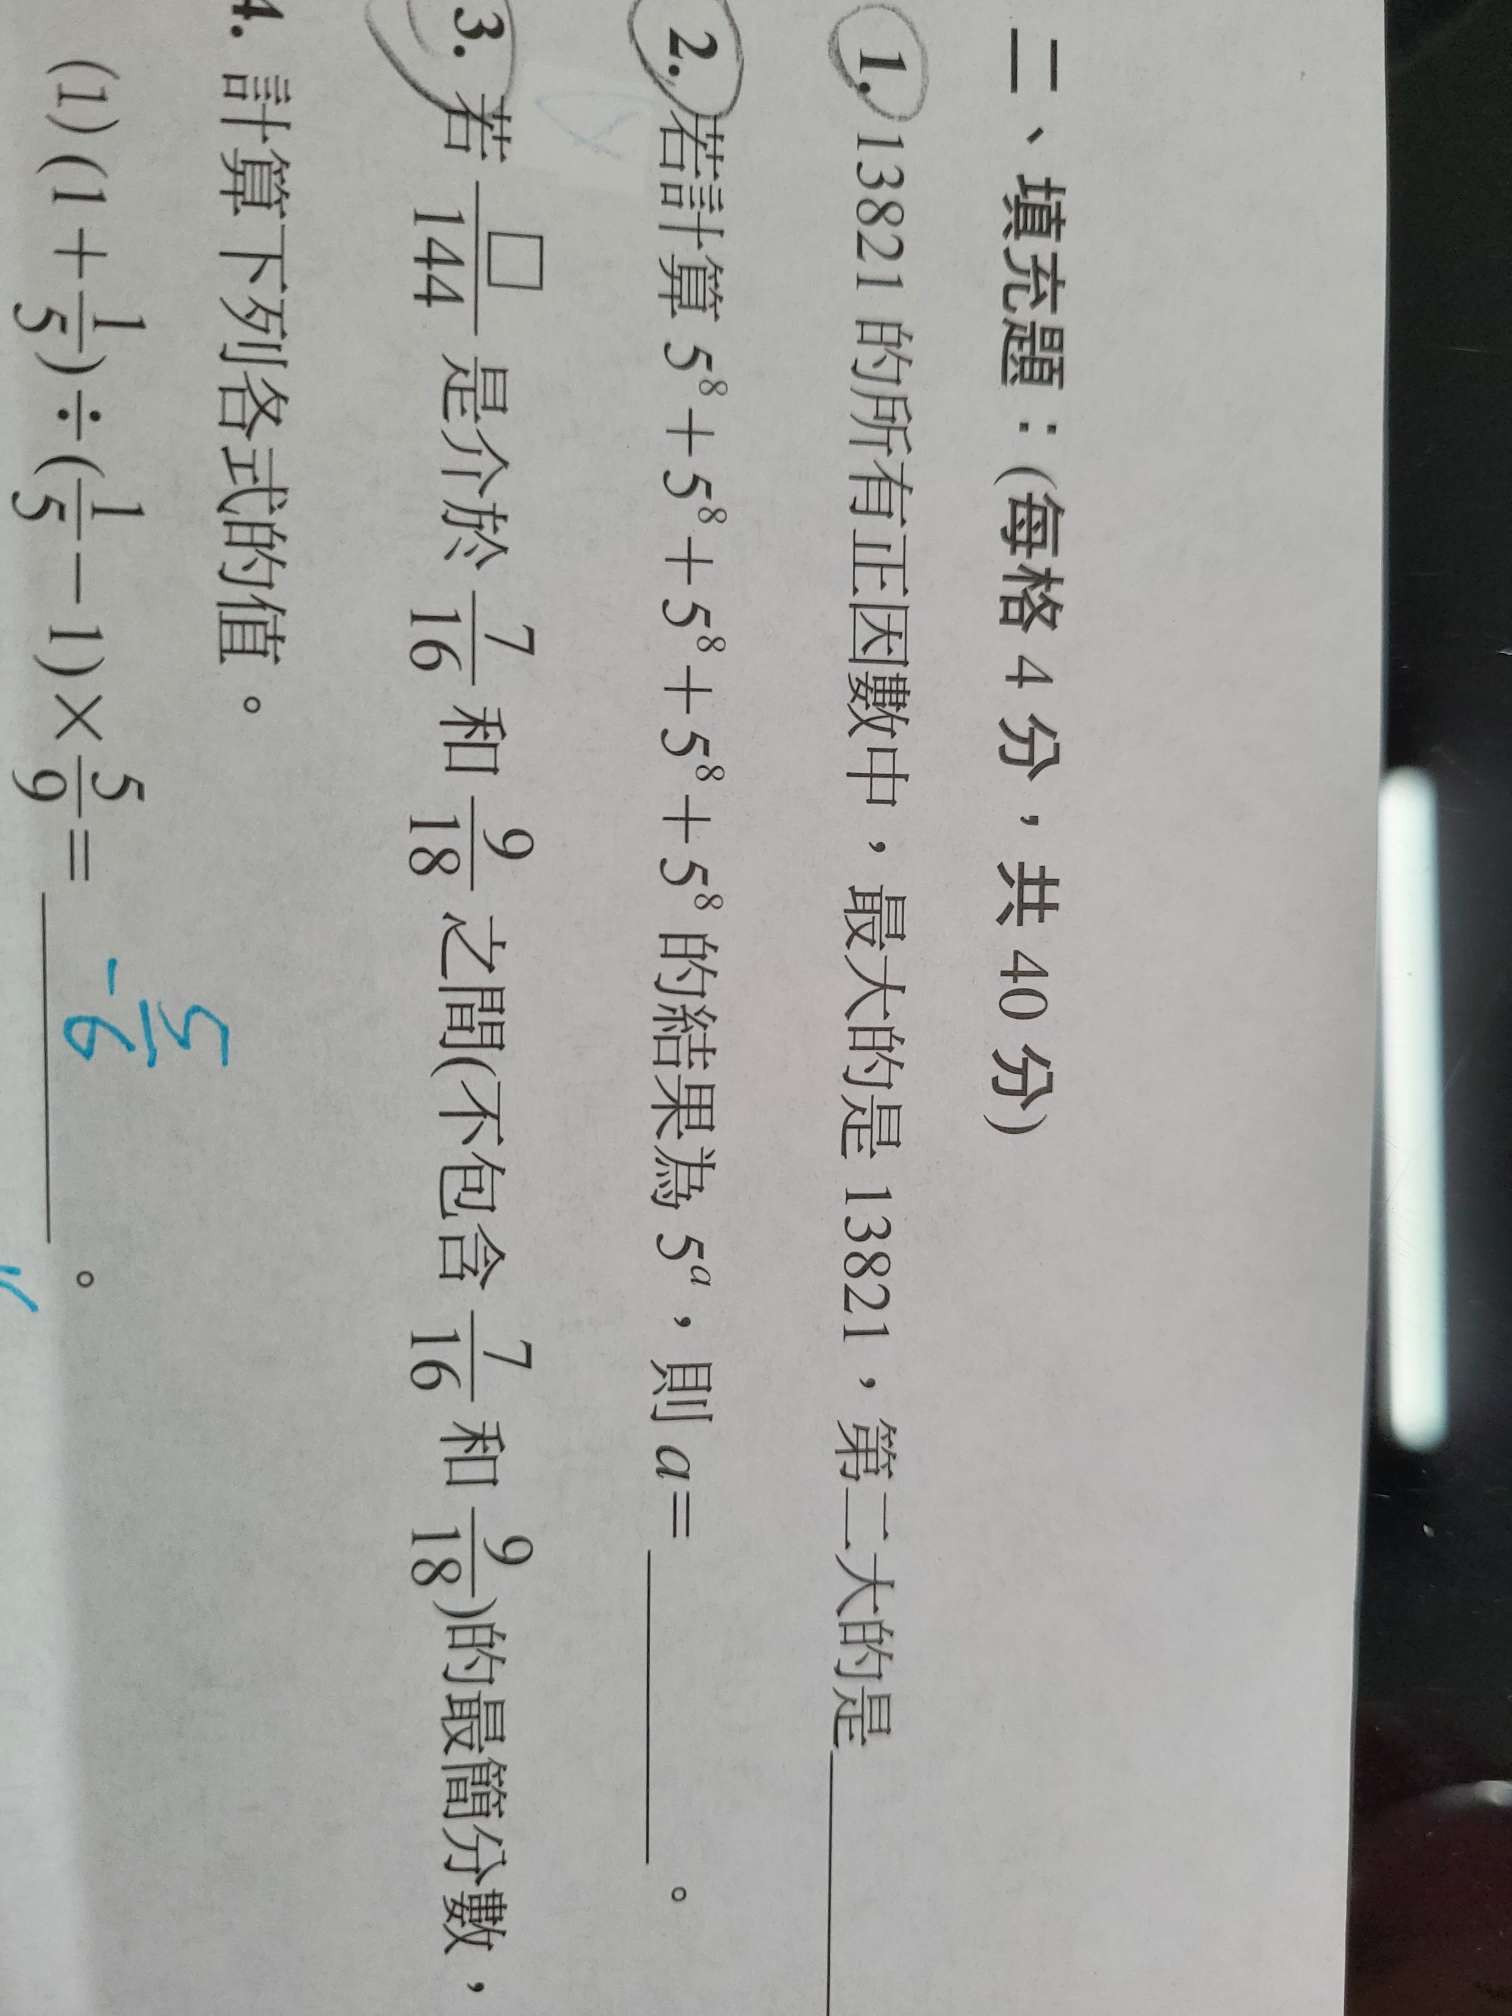 二、填充題：(每格 4 分，共 40 分)
1. 13821 的所有正因數中，最大的是 13821，第二大的是
2. 若計算 5⁸＋5⁸＋5⁸＋5⁸＋5⁸ 的結果為 5ᵃ，則 a＝ 。
3. 若 □/144 是介於 7/16 和 9/18 之間(不包含 7/16 和 9/18)的最簡分數，
4. 計算下列各式的值。
(1) (1＋1/5)÷(1/5－1)×5/9＝ -5/6 。